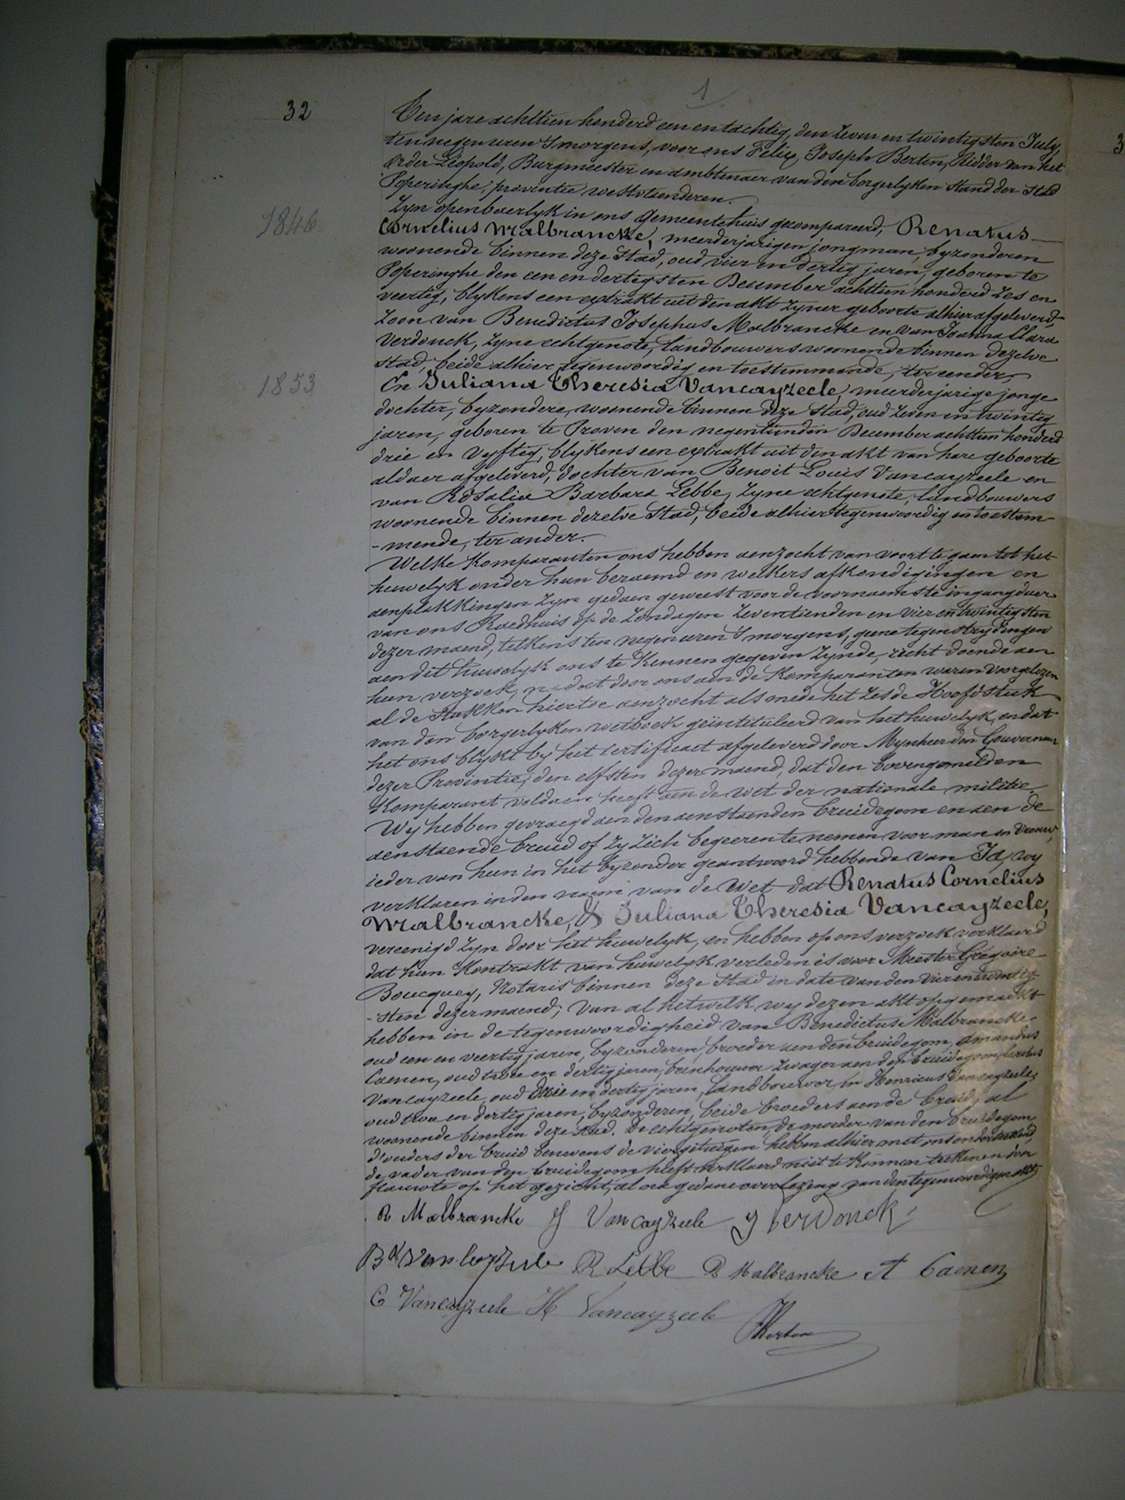 1
32
Ten jare achttien honderd een en tachtig, den zeven en twintigsten July,
ten negen uren 's morgens, voor ons Felix, Joseph Berten, Ridder van het
Order Leopold, Burgmeester en ambtenaer van den borgerlyken stand der Stad
Poperinghe, provintie westvlaenderen.
Zyn openbaerlyk in ons gemeentehuis gecompareerd, Renatus
1846
Cornelius Malbrancke, meerderjarigen jongman, byzonderen
woonende binnen deze Stad, oud vier en dertig jaren, geboren te
Poperinghe den een en dertigsten December achttien honderd zes en
veertig, blykens een extrakt uit den akt zyner geboorte alhier afgeleverd,
Zoon van Benedictus Josephus Malbrancke en van Joanna Clara
Verdonck, zyne echtgenote, landbouwers woonende binnen dezelve
stad, beide alhier tegenwoordig en toestemmende, ter eender,
1853
En Juliana Theresia Vancayzeele, meerderjarige jonge
dochter, byzondere, woonende binnen deze Stad, oud zeven en twintig
jaren, geboren te Proven den negentienden December achttien honderd
drie en vyftig, blykens een extrakt uit den akt van hare geboorte
aldaer afgeleverd, dochter van Benoit Louis Vancayzeele en
van Rosalia Barbara Lebbe, zyne echtgenote, landbouwers
woonende binnen dezelve Stad, beide alhier tegenwoordig en toestem-
-mende, ter ander.
Welke Komparanten ons hebben aenzocht van voort te gaen tot het
huwelyk onder hun beraemd en welkers afkondigingen en
aenplakkingen zyn gedaen geweest voor de voornaemste ingangdeur
van ons Raedhuis op de Zondagen zeventienden en vier en twintigsten
dezer maend, telkens ten negen uren 's morgens, geene tegenstrydingen
aen dit huwelyk ons te kennen gegeven zynde, recht doende aen
hun verzoek, na dat door ons aen de Komparanten waren voorgelezen
al de Stukken hiertoe aenzocht als mede het zesde Hoofdstuk
van den borgerlyken wetboek geïntituleerd van het huwelyk, en dat
het ons blykt by het certificaet afgeleverd door Mynheer den Gouverneur
dezer Provintie, den elfsten dezer maend, dat den bovengemelden
Komparant voldaen heeft aen de wet der nationale militie.
Wy hebben gevraegd aen den aenstaenden bruidegom en aen de
aenstaende bruid of zy zich begeeren te nemen voor man en vrouw,
ieder van hun in het byzonder geantwoord hebbende van Ja, wy
verklaren in den naem van de Wet dat Renatus Cornelius
Malbrancke, & Juliana Theresia Vancayzeele,
vereenigd zyn door het huwelyk, en hebben op ons verzoek verklaerd
dat hun Kontrakt van huwelyk verleden is voor Meester Grégoire
Boucquey, Notaris binnen deze Stad in date van den vier en twintig-
-sten dezer maend; van al hetwelk wy dezen akt opgemaekt
hebben in de tegenwoordigheid van Benedictus Malbrancke
oud een en veertig jaren, byzonderen, broeder aen den bruidegom, Amandus
Caenen, oud twee en dertig jaren, beenhouwer zwager aen den bruidegom,
Vancayzeele, oud drie en dertig jaren, landbouwer, en Henricus Vancayzeele
oud en dertig jaren, byzonderen, beide broeders aen de bruid, al
woonende binnen deze stad. De echtgenoten, de moeder van den bruidegom
d'ouders der bruid benevens de vier getuigen hebben alhier met ons onderteekend,
de vader van den bruidegom heeft verklaerd niet te konnen teekenen door
flauwte op het gezicht, al ook gedane voorlezing van den tegenwoordigen akt.
R Malbrancke J Vancayzeele J Verdonck
Bd Vancayzeele R Lebbe B Malbrancke A Caenen
C Vancayzeele H Vancayzeele
Berten